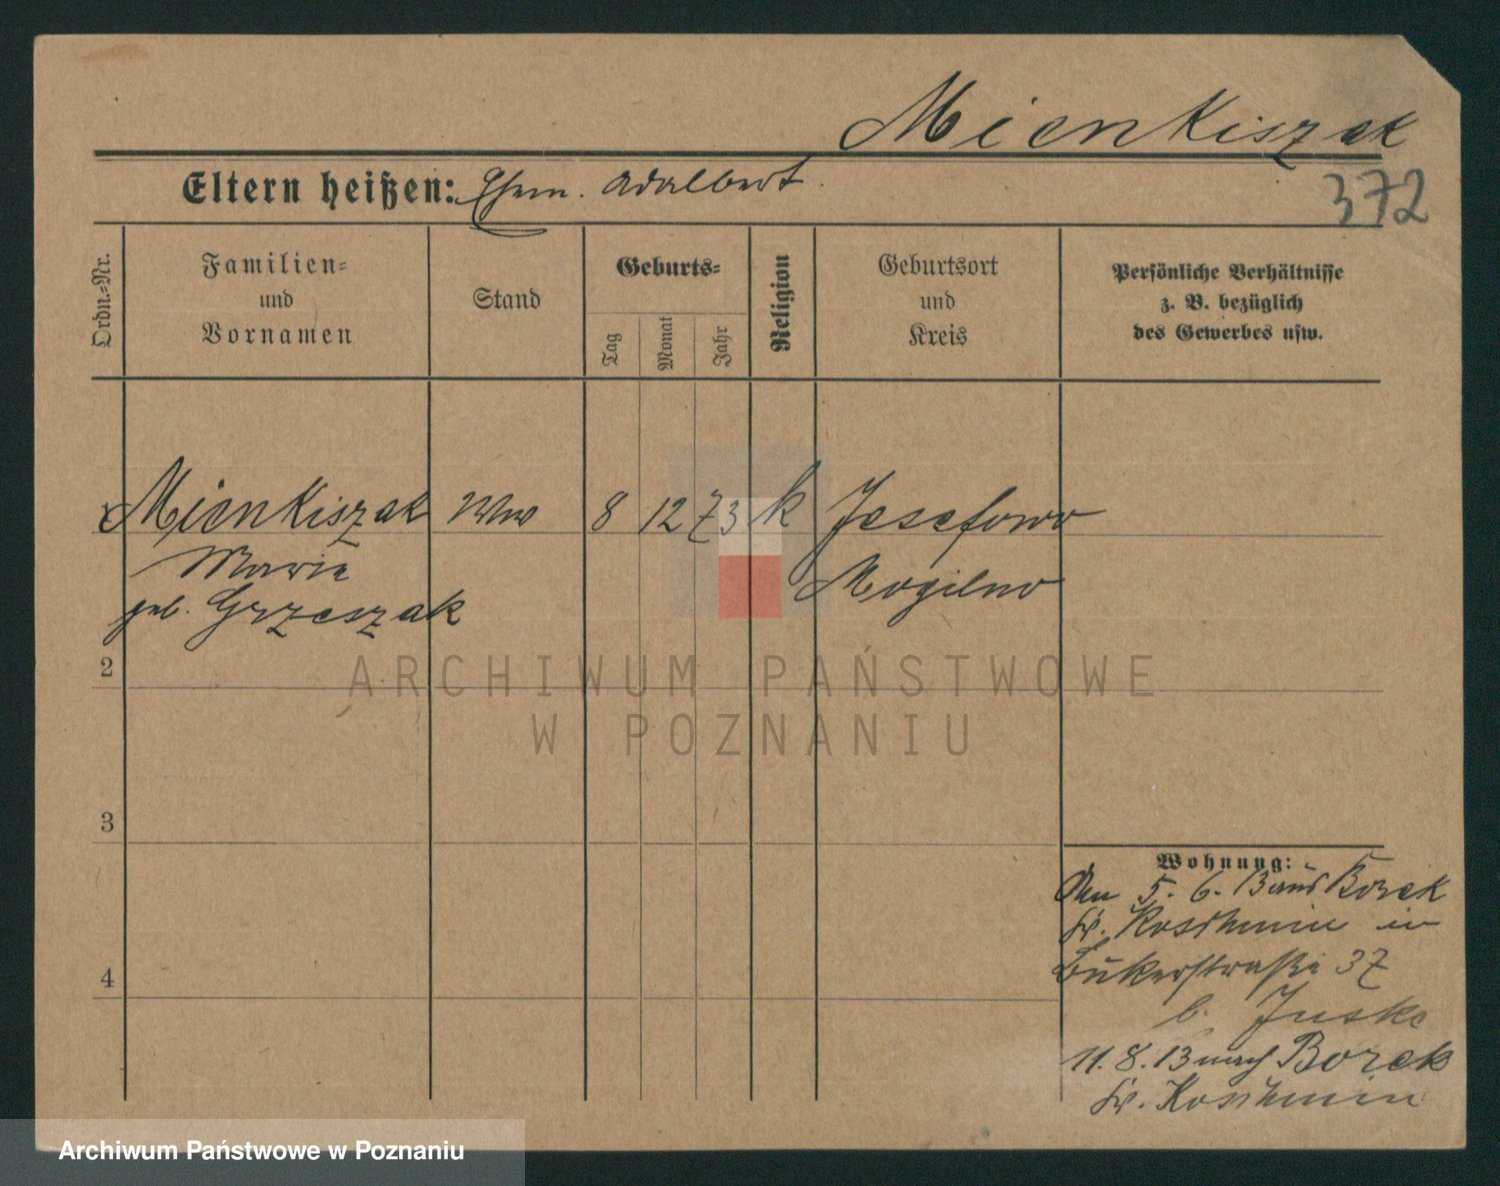 Mienkiszak
Eltern heißen: Ehem. Adalbert.
372
Ordn.-Nr.
Familien-
und
Vornamen
Stand
Geburts-
Tag
Monat
Jahr
Religion
Geburtsort
und
Kreis
Persönliche Verhältnisse
z. B. bezüglich
des Gewerbes usw.
1 Mienkiszak Wwe 8 12 73 k Josefowo
Marie Mogilno
geb. Grzeszak
2
ARCHIWUM PAŃSTWOWE
W POZNANIU
3
Wohnung:
Den 5. 6. 13 aus Borek
Kr. Koschmin in
4
Bukerstraße 37
b. Juske
11. 8. 13 nach Borek
Kr. Koschmin
Archiwum Państwowe w Poznaniu